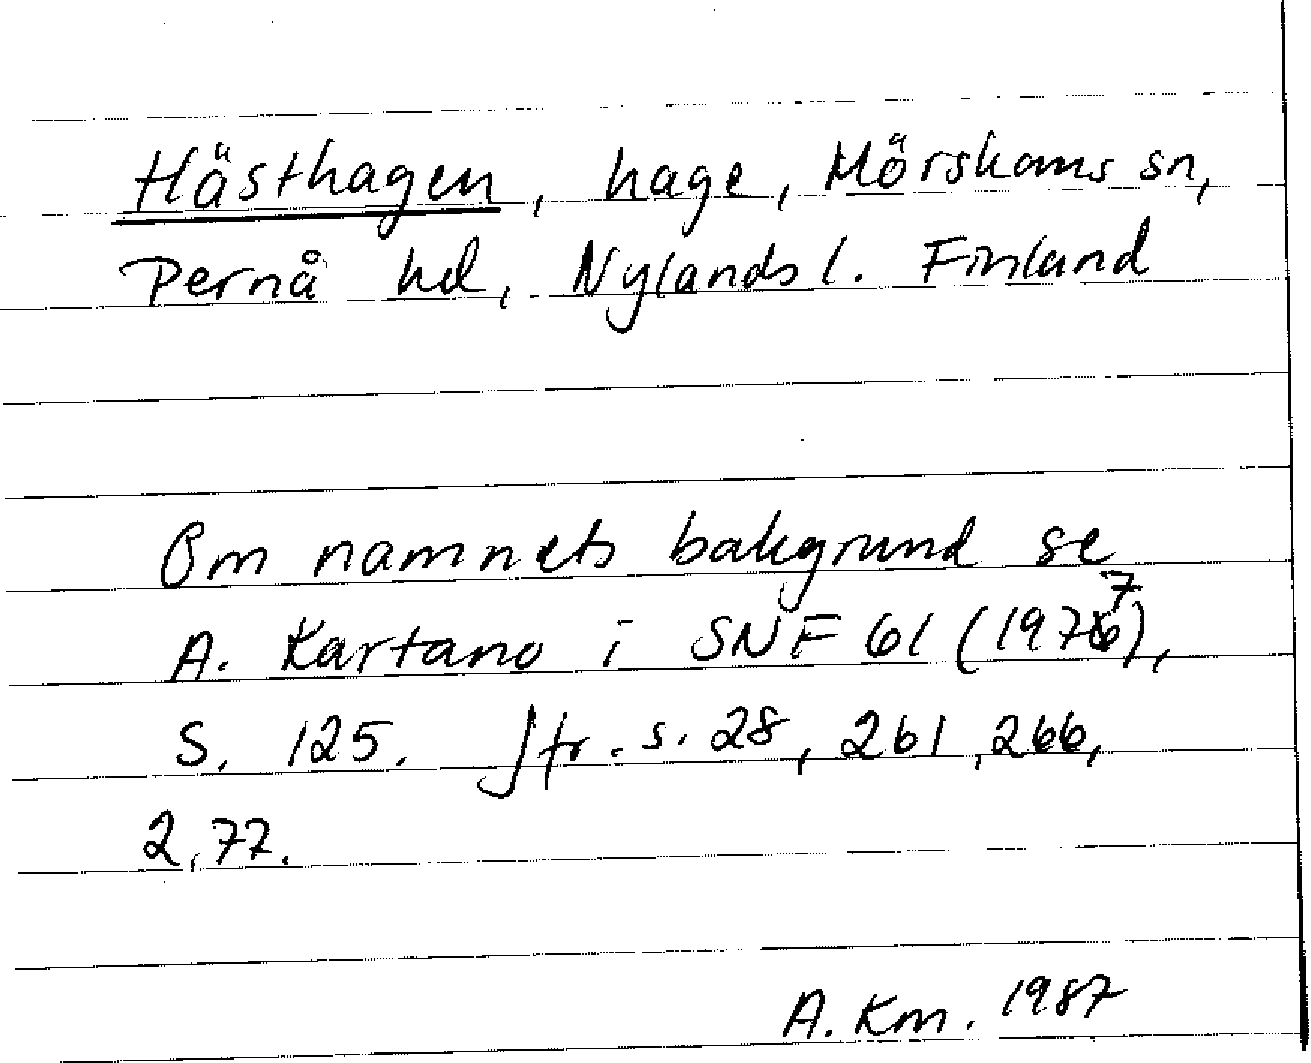 Hästhagen, hage, Mörskoms sn,
Pernå hd, Nylands l. Finland
Om namnets bakgrund se
A. Kartano i SNF 61 (1977),
S. 125. Jfr. s. 28, 261, 266,
2,77.
A. Km. 1987